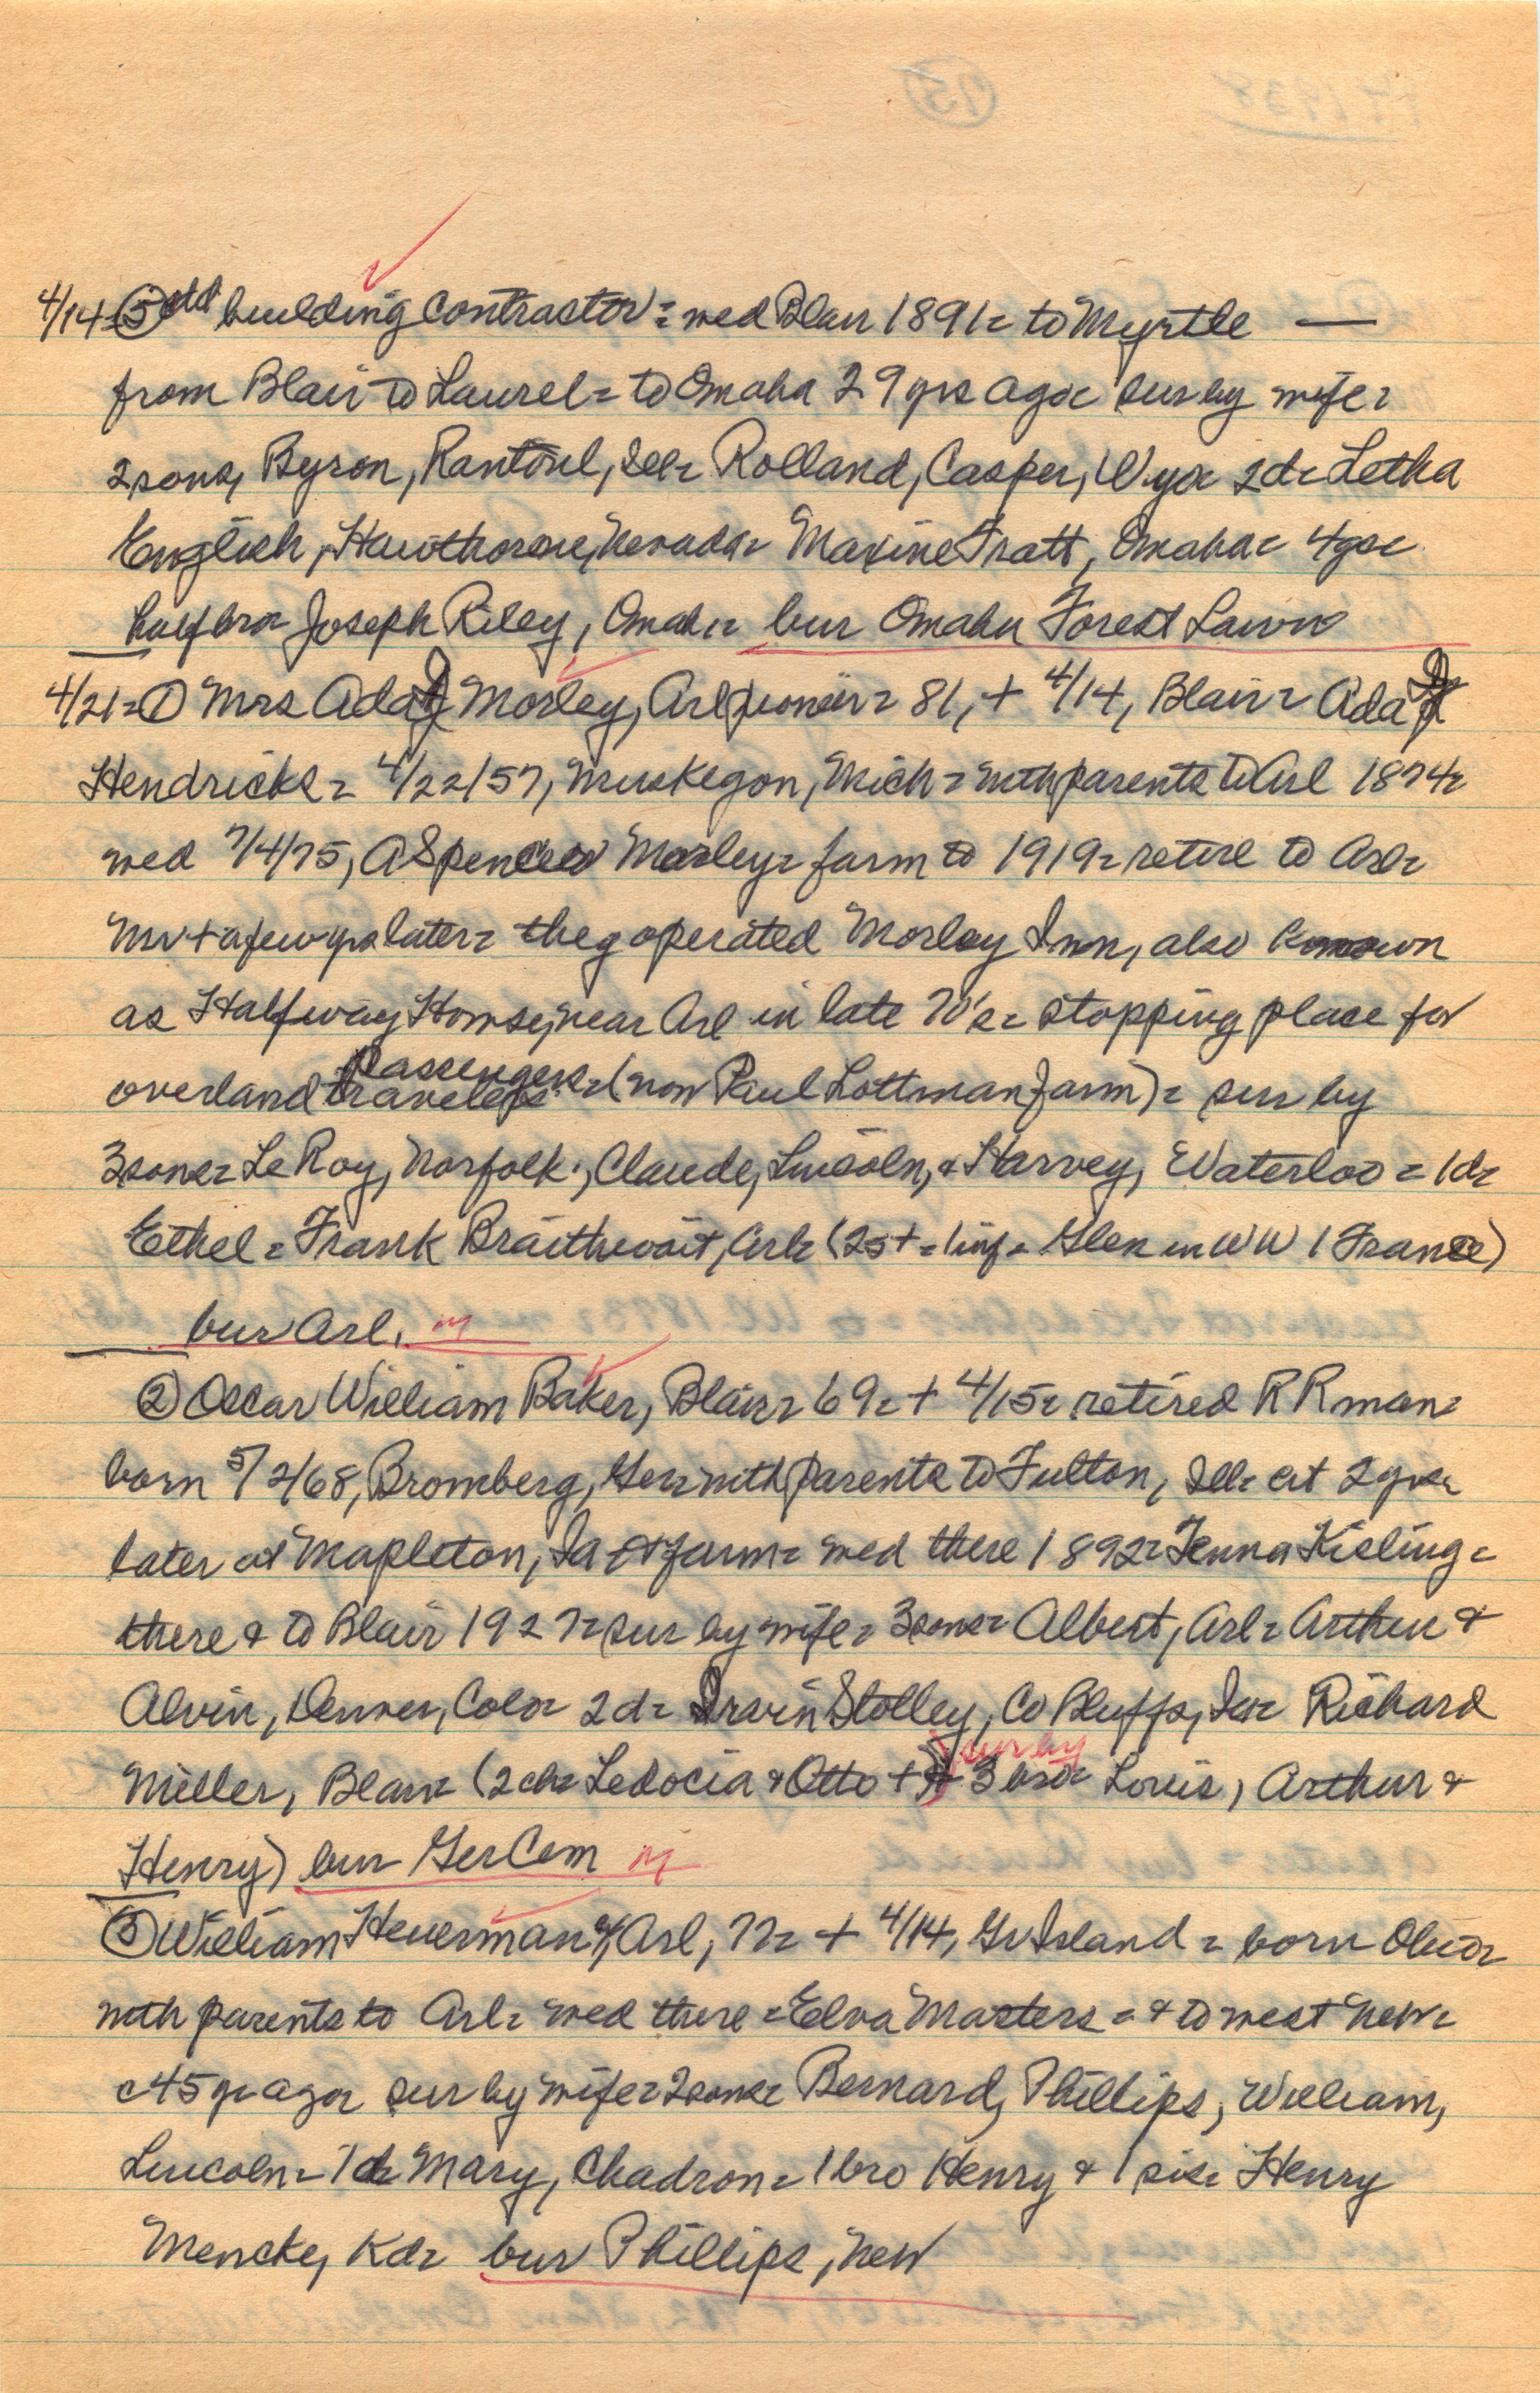 4/14=⑤ctd building contractor= wed Blair 1891= to Myrtle —
from Blair to Laurel= to Omaha 29 yrs ago= sur by wife=
2 sons, Byron, Rantoul, Ill= Rolland, Casper, Wyo= 2d= Letha
English, Hawthorne, Nevada= Maxine Tratt, Omaha= 4gc=
half bro= Joseph Riley, Omaha= bur Omaha Forest Lawn
4/21=① Mrs Ada J Morley, Arl pioneer= 81, + 4/14, Blair= Ada J
Hendricks= 4/22/57, Muskegon, Mich= with parents to Arl 1874=
wed 7/4/75, A Spencer Morley= farm to 1919= retire to Arl=
Mr + a few yrs later= they operated Morley Inn, also known
as Halfway House, near Arl in late 70's= stopping place for
overland travelers passengers= (now Paul Lottman farm)= sur by
3 sons= LeRoy, Norfolk; Claude, Lincoln, & Harvey, Waterloo= 1d=
Ethel= Frank Braithwait, Arl= (2s+ = 1 inf= Glen in WW 1 France)
bur Arl. m
② Oscar William Baker, Blair= 69= + 4/15= retired RR man=
born 5/2/68, Bromberg, Ger= with parents to Fulton, Ill= at 2 yrs=
later at Mapleton, Ia= farm= wed there 1892= Jenna Kieling=
there & to Blair 1927= sur by wife= 3 sons= Albert, Arl= Arthur &
Alvin, Denver, Colo= 2d= Irvin Stolley, Co Bluffs, Ia= Richard
Miller, Blair= (2ch= Ledocia & Otto +) sur by 3 bro= Louis, Arthur &
Henry) bur Ger Cem m
③ William Heuerman, of Arl, 72= + 4/14, Gr Island= born Ohio=
with parents to Arl= wed there= Edna Masters= & to west Neb=
c 45 yr ago= sur by wife= 2 sons= Bernard, Phillips, William,
Lincoln= 1d= Mary, Chadron= 1 bro Henry & 1 sis= Henry
Mencke, Kd= bur Phillips, Neb